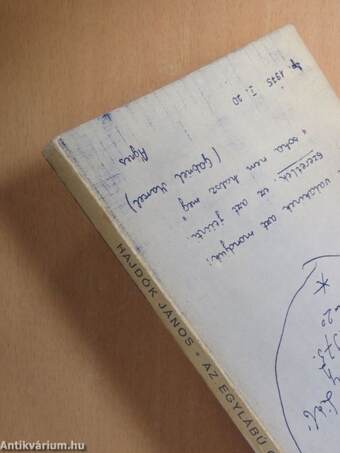 valakinek azt mondjuk:
szeretlek ez azt jelenti
"soha nem halsz meg"
(Gabriel Marcel)
Ágnes
1975 I. 20
HAJDÓK JÁNOS • AZ EGYLÁBÚ
*
20
Antikvárium.hu